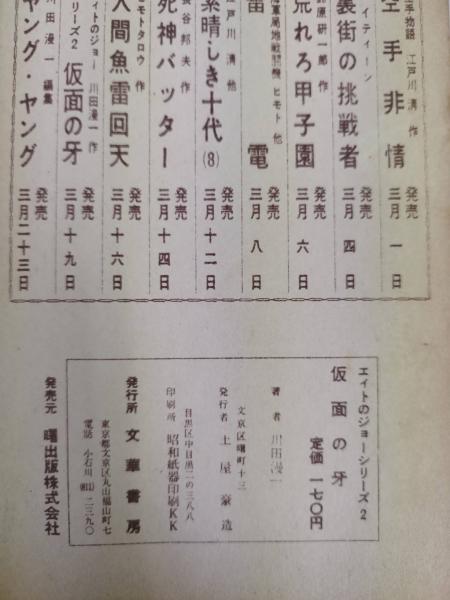 空手物語 江戸川清作
空手非情
発売 三月一日
イティーン
裏街の挑戦者
発売 三月四日
原研一郎作
荒れろ甲子園
発売 三月六日
海軍局地戦闘機 ヒモト他
雷電
発売 三月八日
江戸川清他
素晴しき十代(8)
発売 三月十二日
長谷邦夫作
死神バッター
発売 三月十四日
ヒモトタロウ作
人間魚雷回天
発売 三月十六日
エイトのジョー 川田漫一作
シリーズ2 仮面の牙
発売 三月十九日
川田漫一編集
ヤング・ヤング
発売 三月二十三日
エイトのジョーシリーズ2
仮面の牙
定価 一七〇円
著者 川田漫一
文京区曙町十三
発行者 土屋豪造
目黒区中目黒二の三八八
印刷所 昭和紙器印刷KK
発行所 文華書房
東京都文京区丸山福山町七
電話 小石川(811)二三九〇
発売元 曙出版株式会社